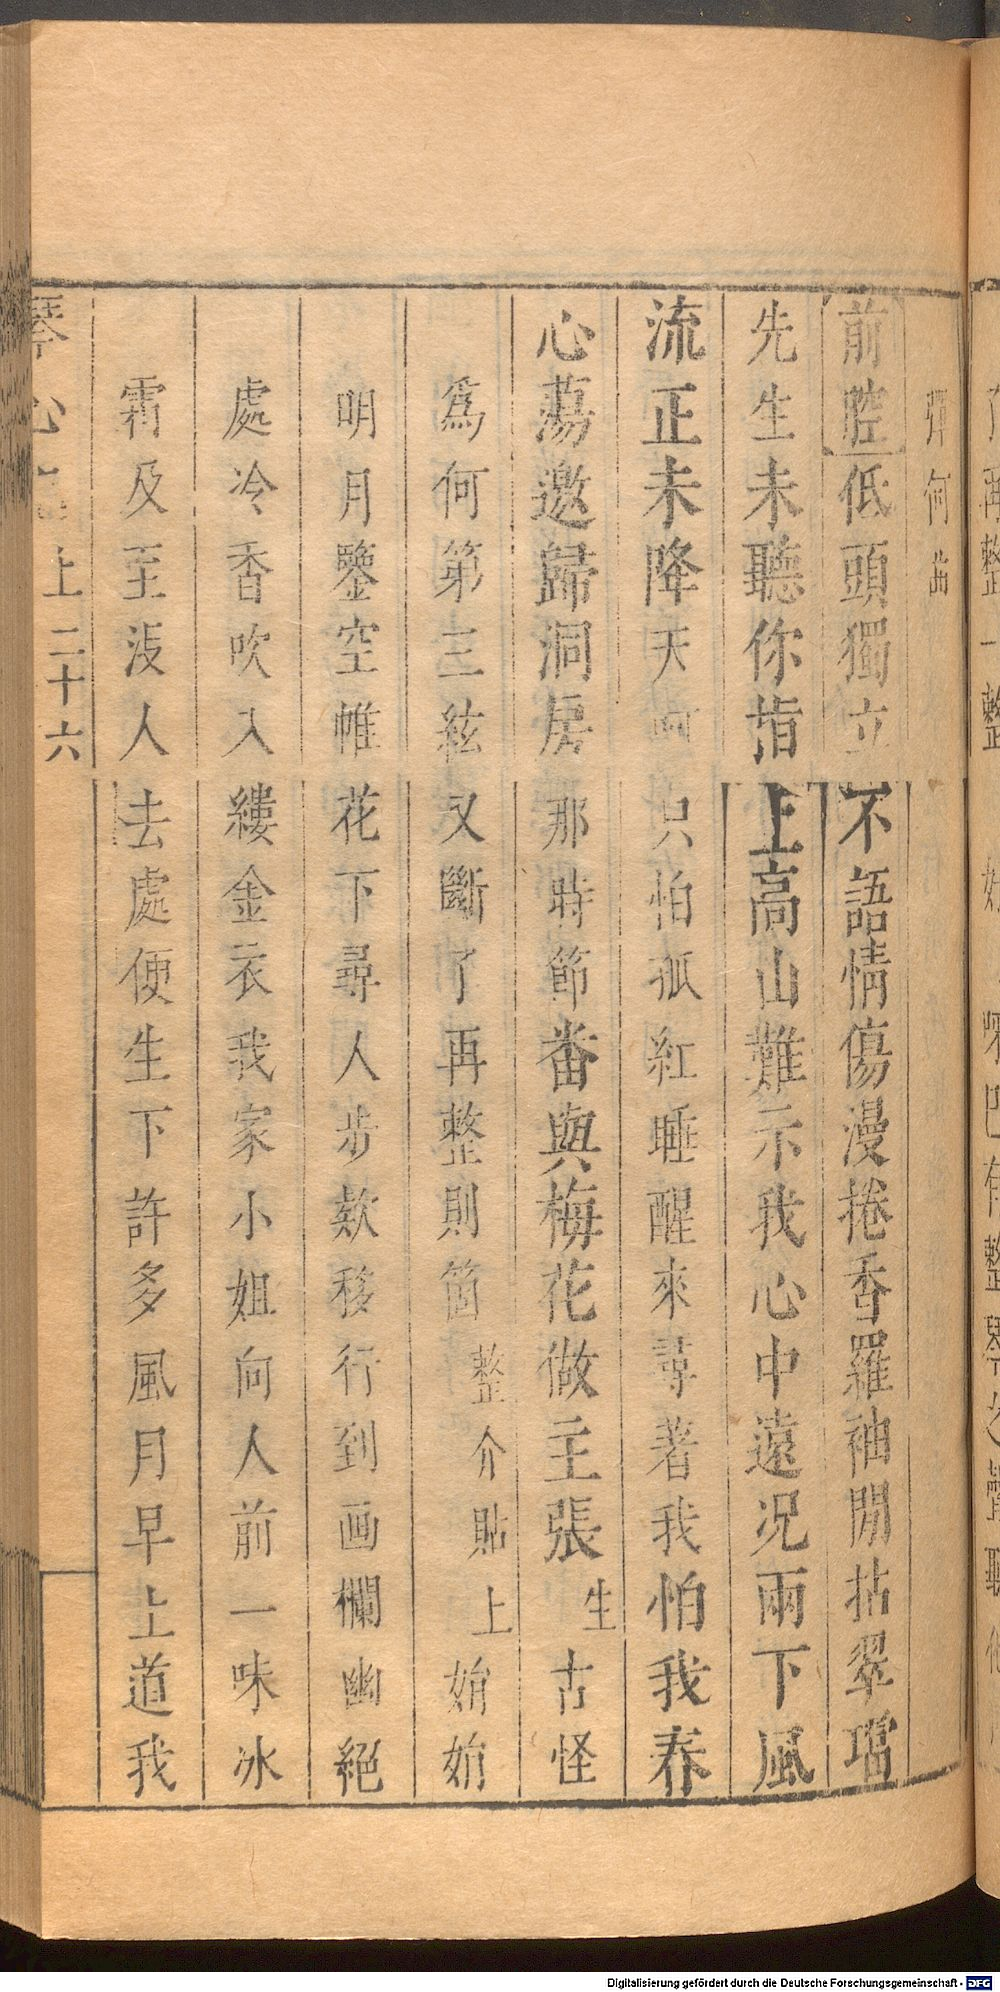 彈何曲
前腔低頭獨立不語情傷漫捲香羅袖閒拈翠璫
先生未聽你指上高山難示我心中遠况兩下風
流正未降天呵只怕孤紅睡醒來尋著我怕我春
心蕩邀歸洞房那時節番與梅花做主張生古怪
爲何第三絃又斷了再整則箇整介貼上姐姐
明月鑒空帷花下尋人步欵移行到画欄幽絕
處冷香吹入縷金衣我家小姐向人前一味冰
霜及至沒人去處便生下許多風月早上道我
琴心上二十六
Digitalisierung gefördert durch die Deutsche Forschungsgemeinschaft - DFG